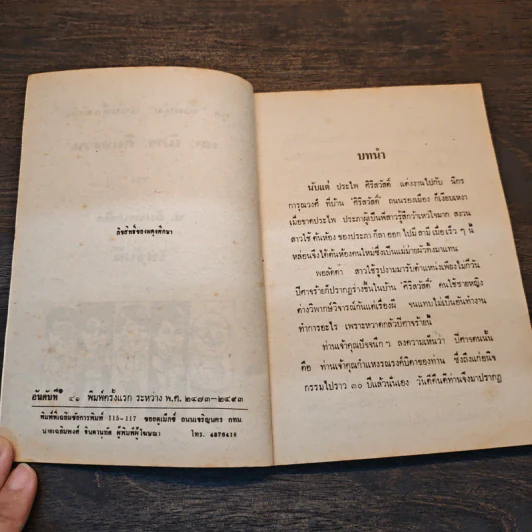 ลิขสิทธิ์ของผดุงศึกษา
อันดับที่ ๔๑ พิมพ์ครั้งแรก ระหว่าง พ.ศ. ๒๔๗๓-๒๔๙๓
พิมพ์ที่เฉลิมชัยการพิมพ์ 115-117 ซอยดูเม็กซ์ ถนนเจริญนคร กทม.
นายเฉลิมพงศ์ จินดานุทัส ผู้พิมพ์ผู้โฆษณา โทร. 4376419
บทนำ
นับแต่ ประไพ ศิริสวัสดิ์ แต่งงานไปกับ นิกร
การุณวงศ์ ที่บ้าน 'ศิริสวัสดิ์' ถนนรองเมือง ก็เงียบเหงา
เมื่อขาดประไพ ประภาผู้เป็นพี่สาวรู้สึกว้าเหว่ใจมาก สงวน
สาวใช้ ต้นห้อง ของประภา ก็ลา ออก ไป มี สามี เมื่อ เร็ว ๆ นี้
หล่อนจึงได้ต้นห้องคนใหม่ซึ่งเป็นแม่ม่ายผัวทิ้งมาแทน
พอลัดดา สาวใช้รูปงามมารับตำแหน่งเพียงไม่กี่วัน
ปีศาจร้ายก็ปรากฏร่างขึ้นในบ้าน 'ศิริสวัสดิ์' คนใช้ชายหญิง
ต่างวิพากษ์วิจารณ์กันแต่เรื่องผี จนแทบไม่เป็นอันทำงาน
ทำการอะไร เพราะหวาดกลัวปีศาจร้ายนี้
ท่านเจ้าคุณปัจจนึก ๆ ลงความเห็นว่า ปีศาจตนนั้น
คือ ท่านเจ้าคุณกำแหงรณรงค์บิดาของท่าน ซึ่งถึงแก่อนิจ
กรรมไปราว ๓๐ ปีแล้วนั่นเอง วันดีคืนดีท่านจึงมาปรากฏ